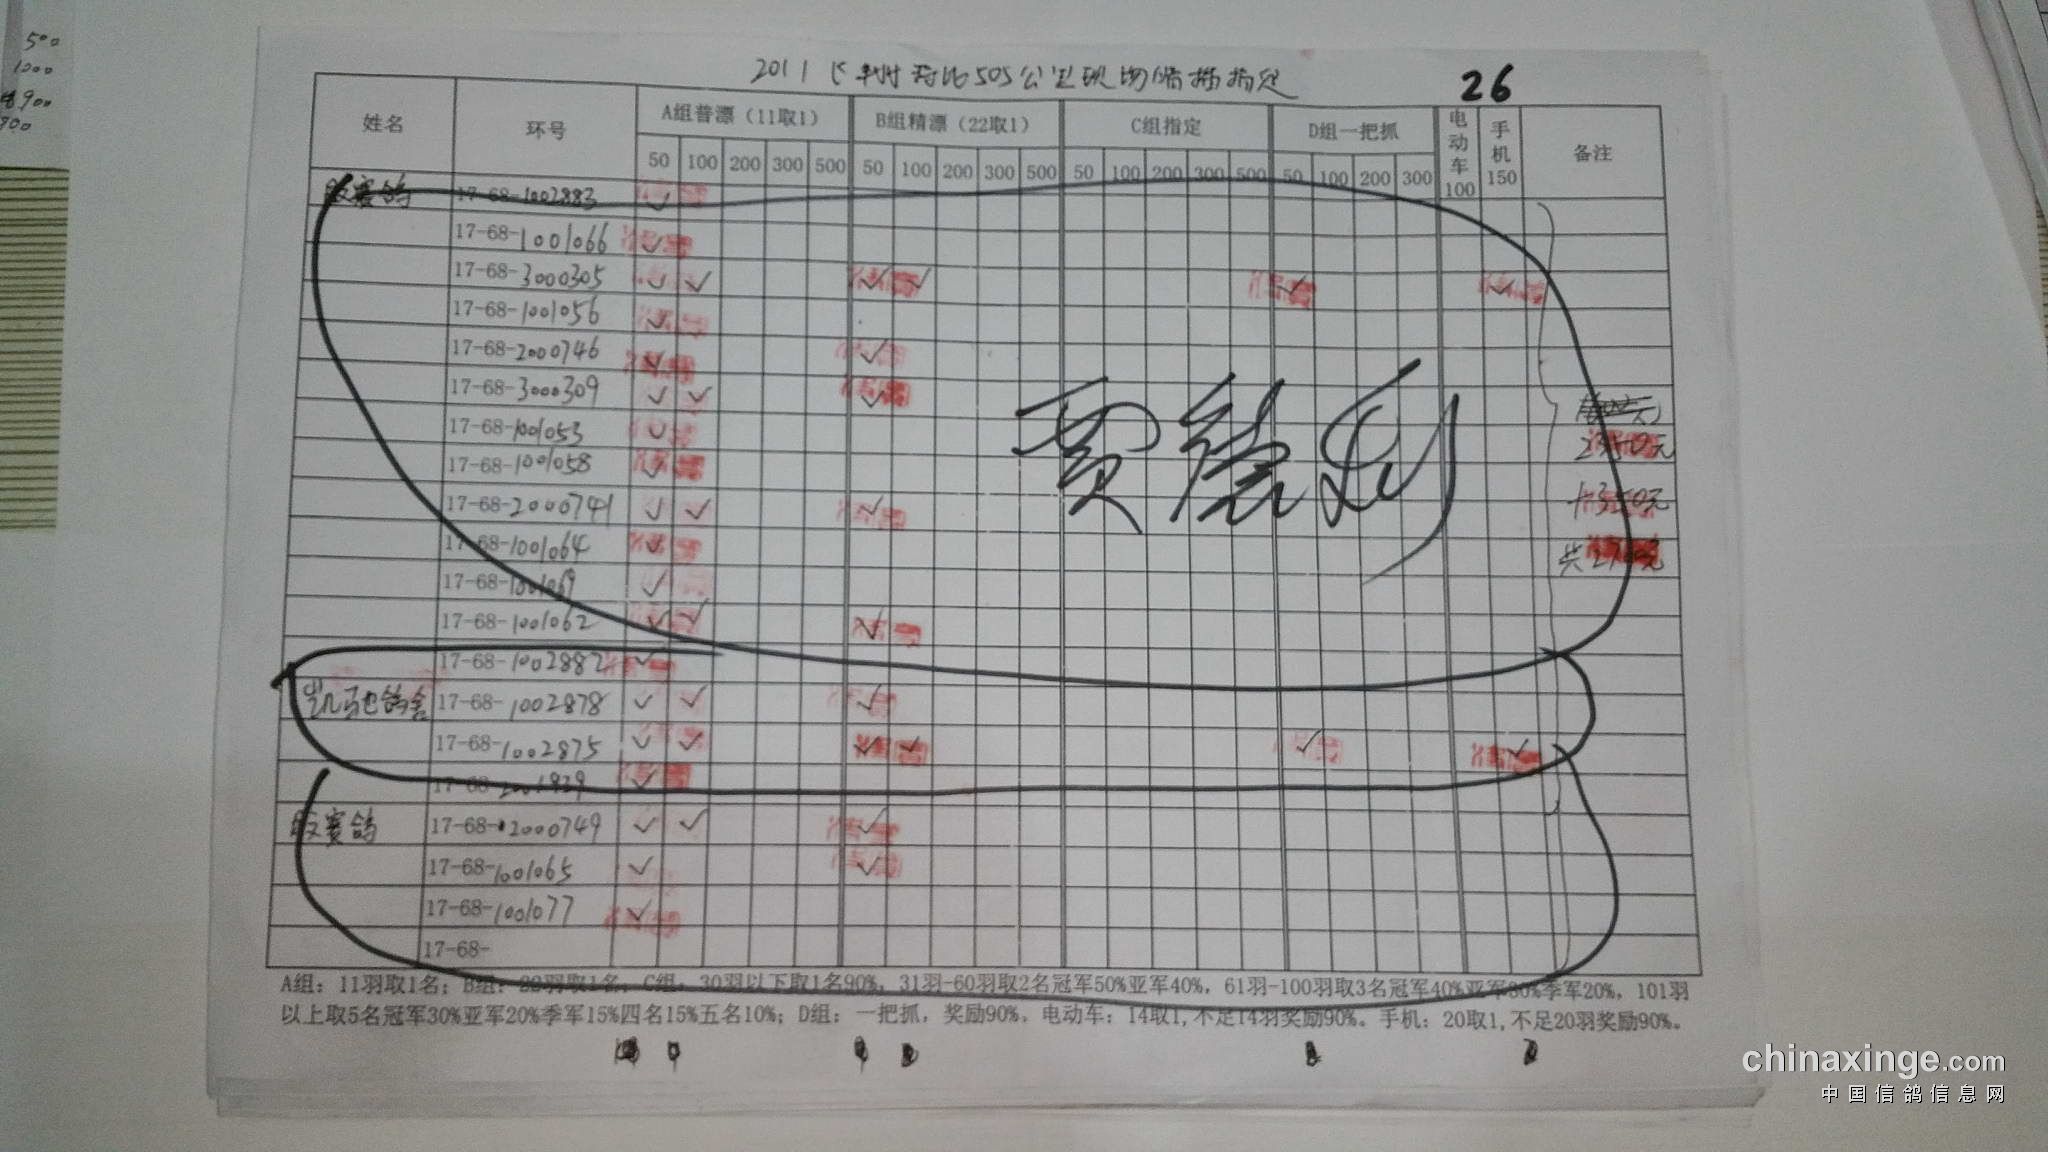 500
1200
900
26
姓名 环号 A组普漂（11取1） B组精漂（22取1） C组指定 D组一把抓 电动车100 手机150 备注
50 100 200 300 500 50 100 200 300 500 50 100 200 300 500 50 100 200 300
赛鸽 17-68-1002883 ✓
17-68-1001066 ✓
17-68-3000305 ✓ ✓ ✓ ✓ ✓ ✓
17-68-1001056 ✓
17-68-2000746 ✓ ✓
17-68-3000309 ✓ ✓ ✓
17-68-1001053 ✓
17-68-1001058 ✓
17-68-2000741 ✓ ✓ ✓
17-68-1001064 ✓
17-68-1001069 ✓
17-68-1001062 ✓ ✓ ✓
17-68-1002882 ✓
凯驰鸽舍 17-68-1002878 ✓ ✓ ✓
17-68-1002875 ✓ ✓ ✓ ✓ ✓ ✓
17-68- ✓
赛鸽 17-68-2000749 ✓ ✓ ✓
17-68-1001065 ✓ ✓
17-68-1001077 ✓
17-68-
A组：11羽取1名；B组：22羽取1名，C组：30羽以下取1名90%，31羽-60羽取2名冠军50%亚军40%，61羽-100羽取3名冠军40%亚军30%季军20%，101羽
以上取5名冠军30%亚军20%季军15%四名15%五名10%；D组：一把抓，奖励90%，电动车：14取1,不足14羽奖励90%。手机：20取1,不足20羽奖励90%。
chinaxinge.com
中国信鸽信息网